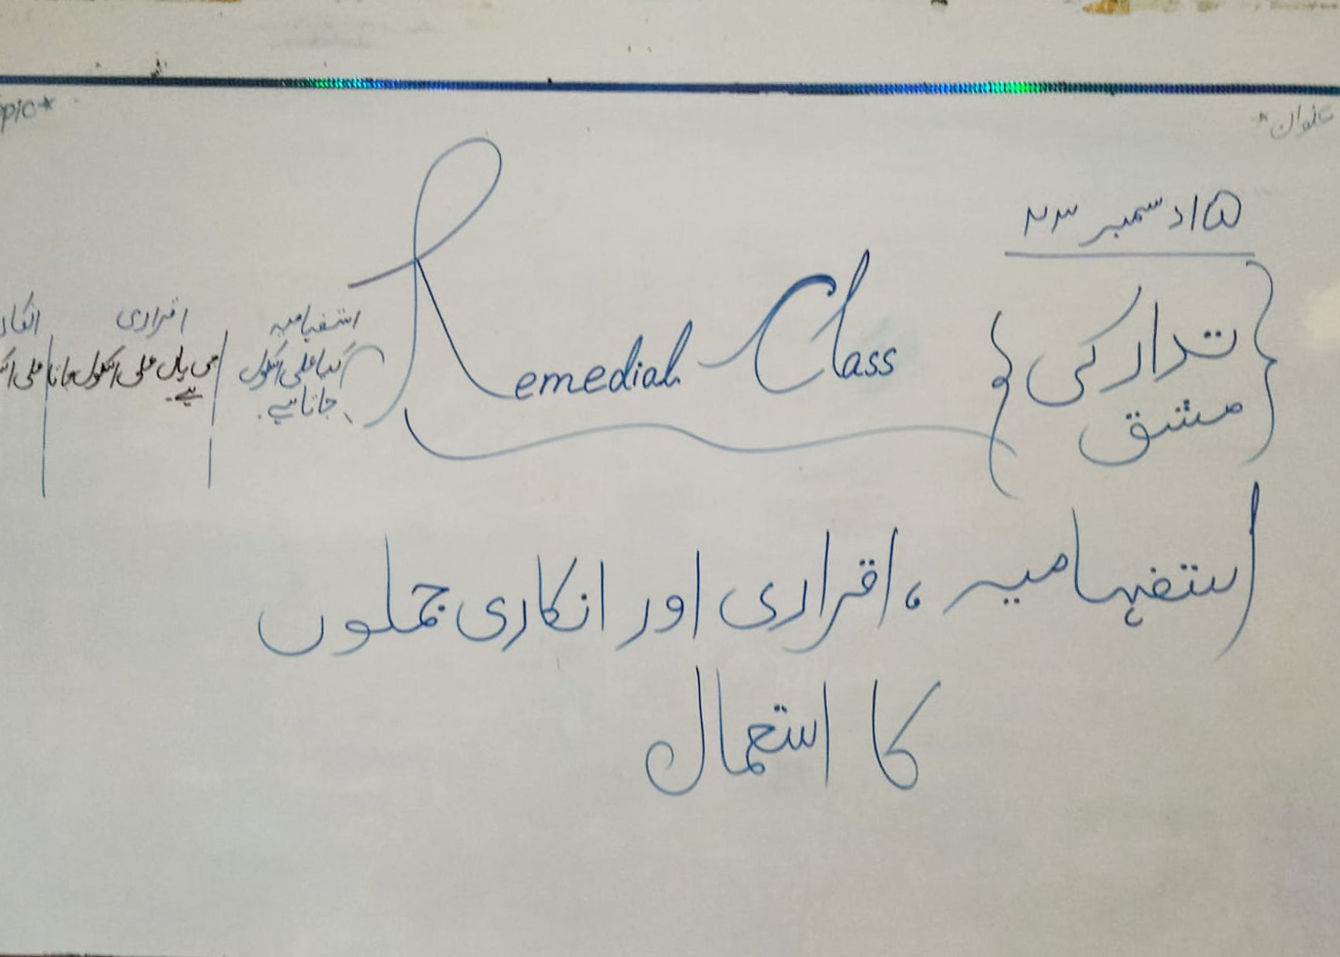 عنوان*
*pic
۱۵دسمبر ۲۳
تدارکی
مشق
Remedial Class
استفہامیہ
کیا علی اسکول
جاتا ہے۔
اقراری
جی ہاں علی اسکول جاتا
ہے۔
انکار
علی اس
استفہامیہ ، اقراری اور انکاری جملوں
کا استعمال